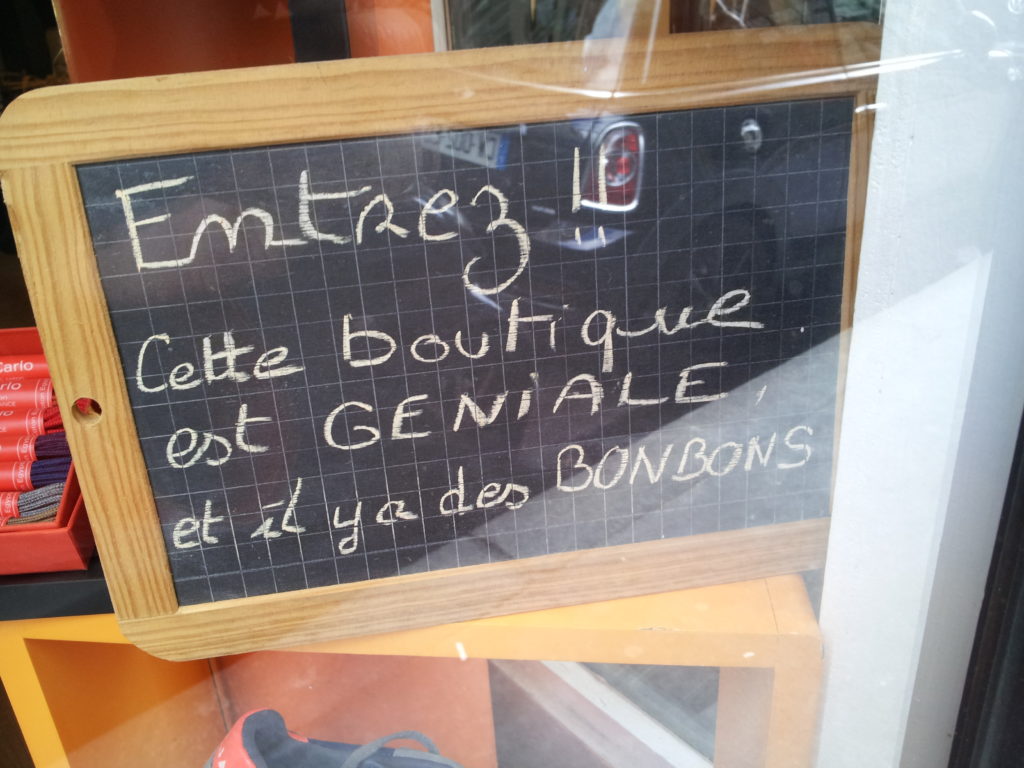 Entrez !!
Cette boutique
est GENiALE,
et il y a des BONBONS
Carlo